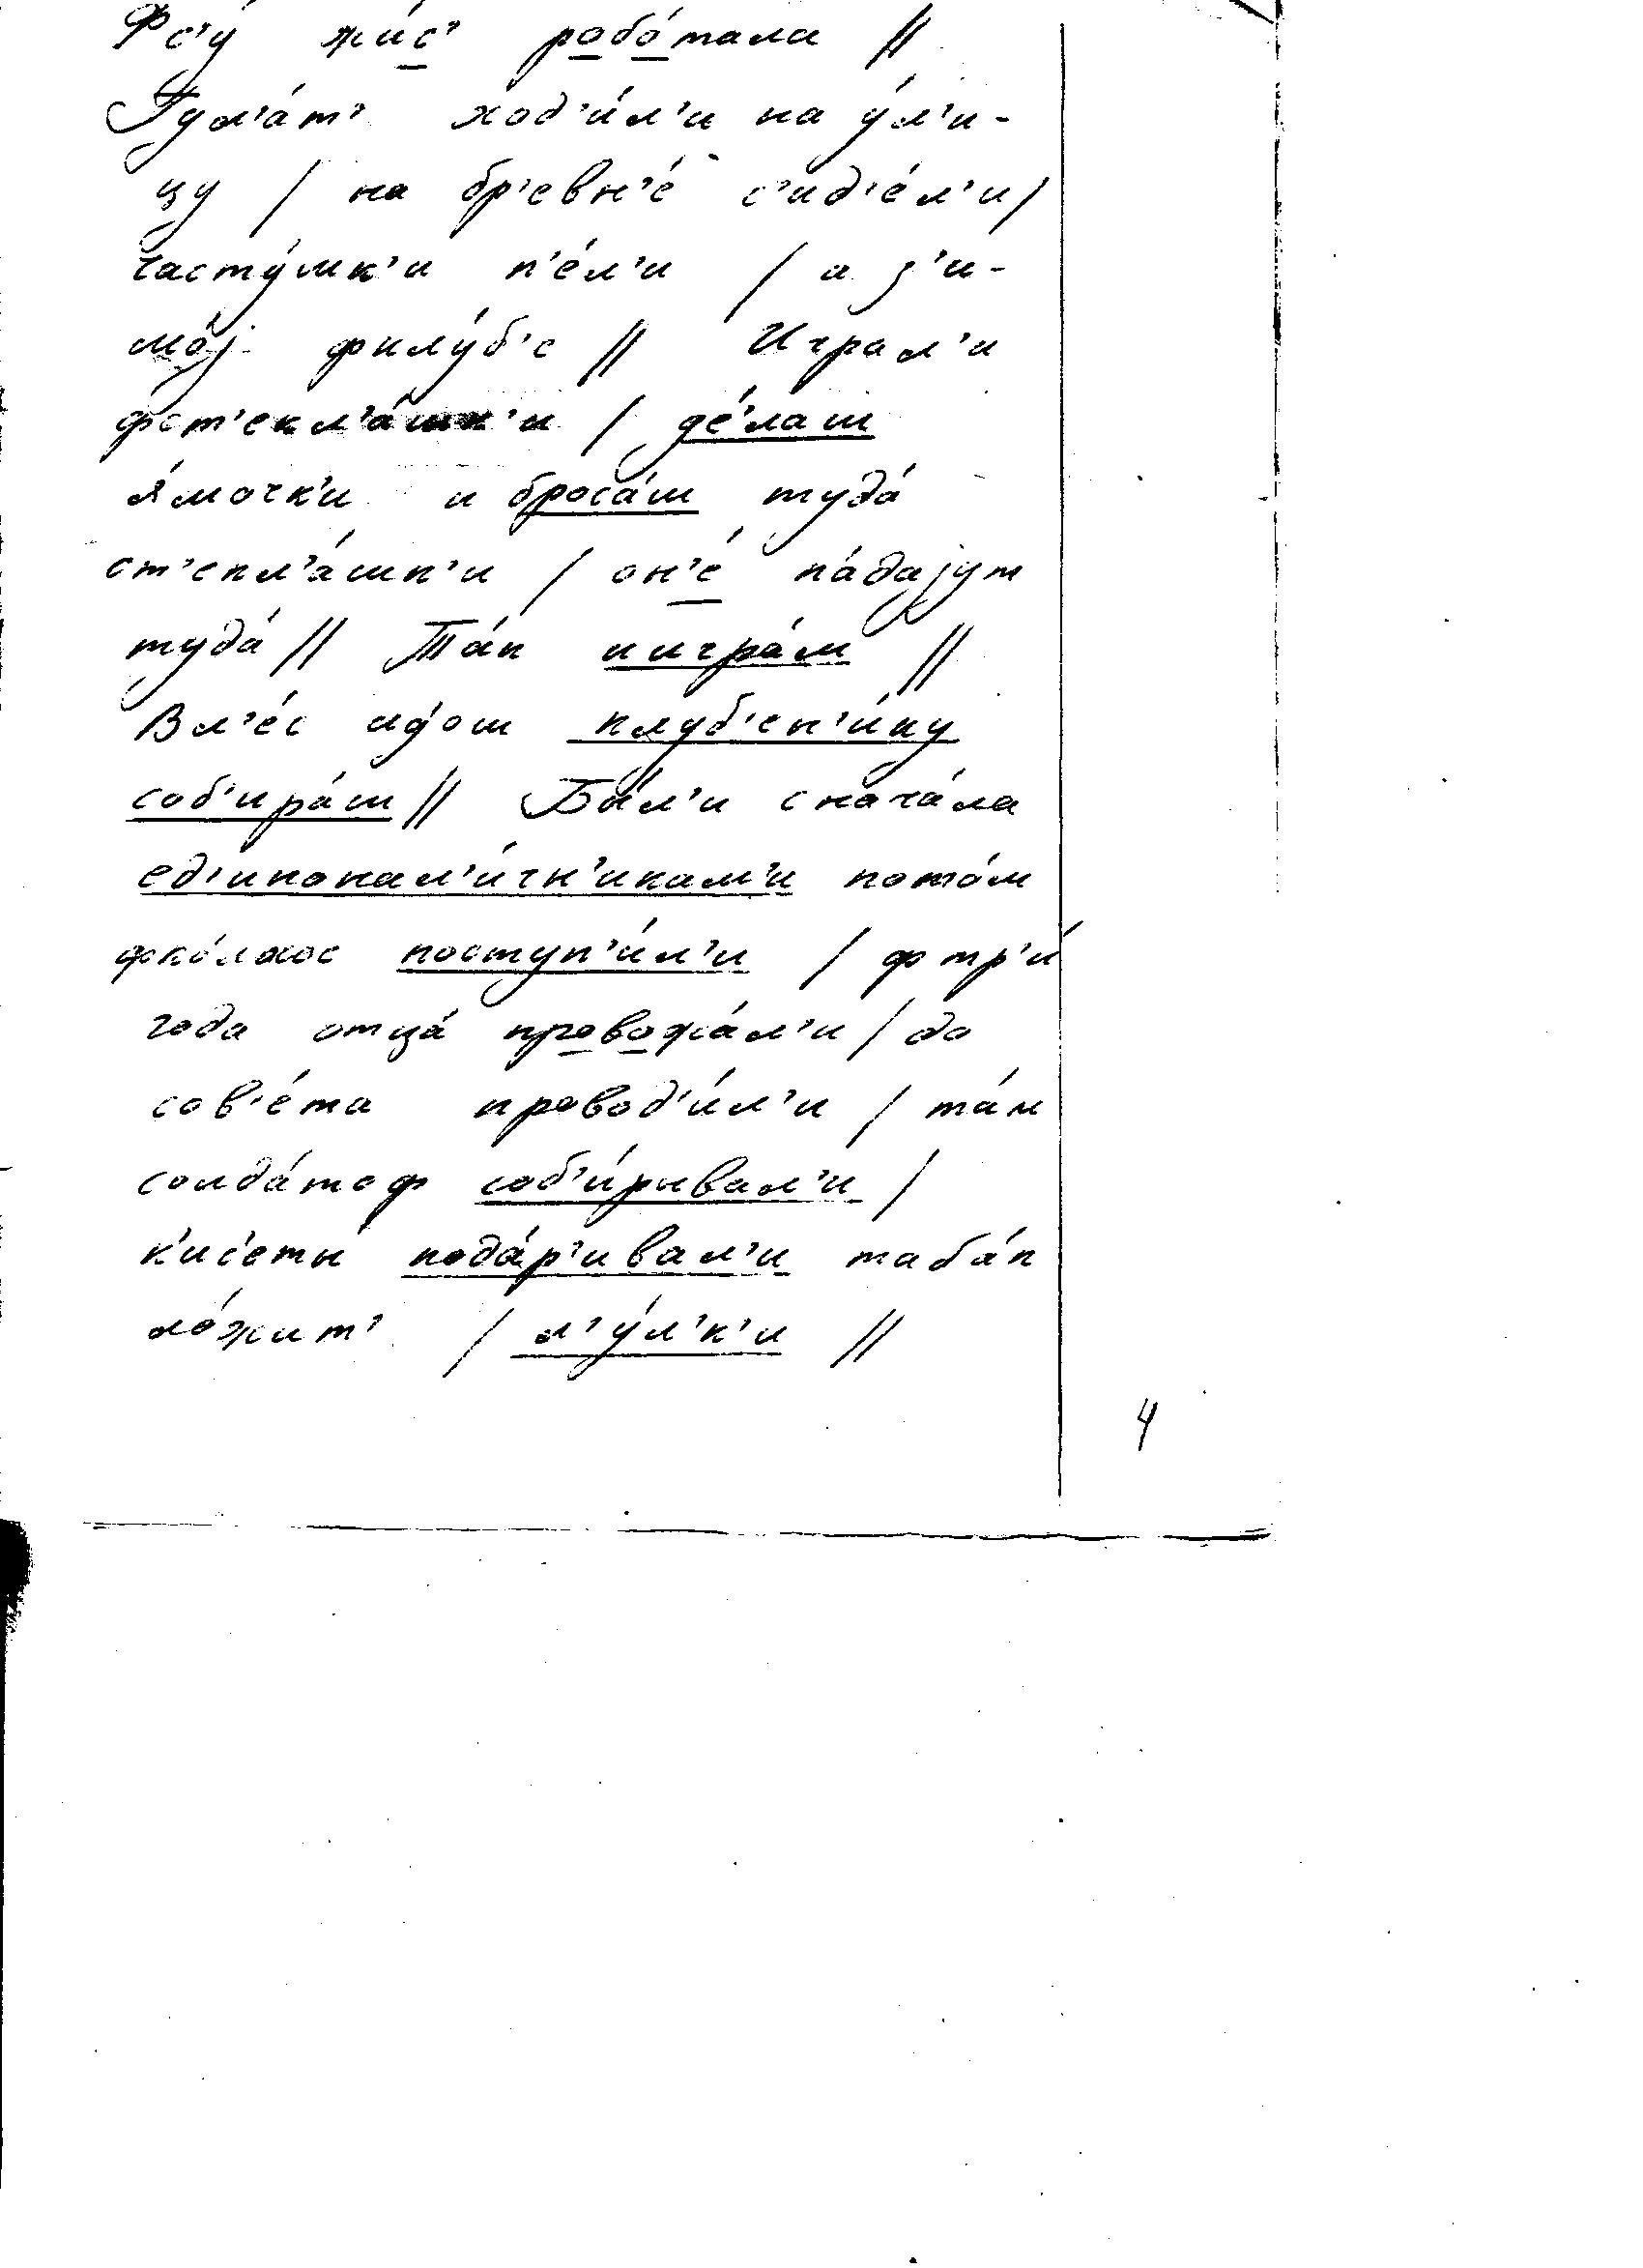 Фс'у́ жи́с' робо́тала //
Гул'а́т' ход'и́л'и на у́л'и-
цу / на бр'евн'е́ с'ид'е́л'и /
часту́шк'и п'е́л'и / а з'и-
мо́j фклу́б'е // Играл'и
фст'екл'а́шк'и / де́лаш
я́мочк'и и броса́ш туда́
ст'екл'а́шк'и / он'е́ па́даjут
туда́ // Та́к и игра́м //
В л'е́с идо́ш клуб'ен'и́ку
соб'ира́ш // Бы́л'и снача́ла
ед'инонал'и́чн'икам'и пото́м
фко́лхос поступ'и́л'и / ф тр'и́
года отца́ провожа́л'и / до
сов'е́та провод'и́л'и / та́м
солда́тоф соб'и́рывал'и /
к'ис'еты́ пода́р'ивал'и таба́к
ло́жит' / л'у́л'к'и //
4